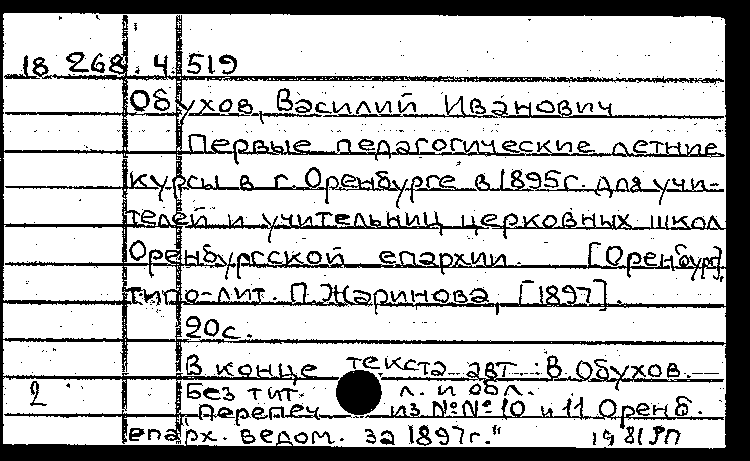 18 268.4 519
Обухов, Василий Иванович
Первые педагогические летние
курсы в г. Оренбурге в 1895г. для учи-
телей и учительниц церковных школ
Оренбургской епархии. [Оренбург],
типо-лит. П. Жаринова, [1897].
20с.
В конце текста авт.: В. Обухов. —
Без тит. л. и обл.
2 "Перепеч. из №№ 10 и 11 Оренб.
епарх. ведом. за 1897г."